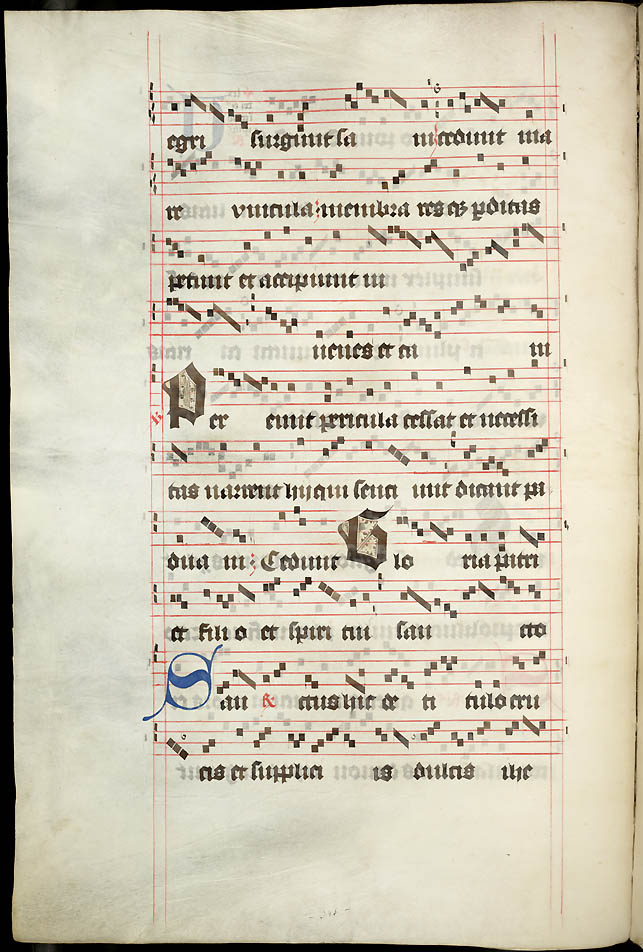 egri surgunt sa ni cedunt ma
re vincula membra res qz pditas
petunt et accipiunt iu
uenes et ca ni
Per eunt pericula cessat et necessi
tas narrent hij qui senci unt dicant pa
dua ni Cedunt Glo ria patri
et fili o et spiri tui san cto
San ctus hic de ti tulo cru
cis et supplici is dulcis ihe